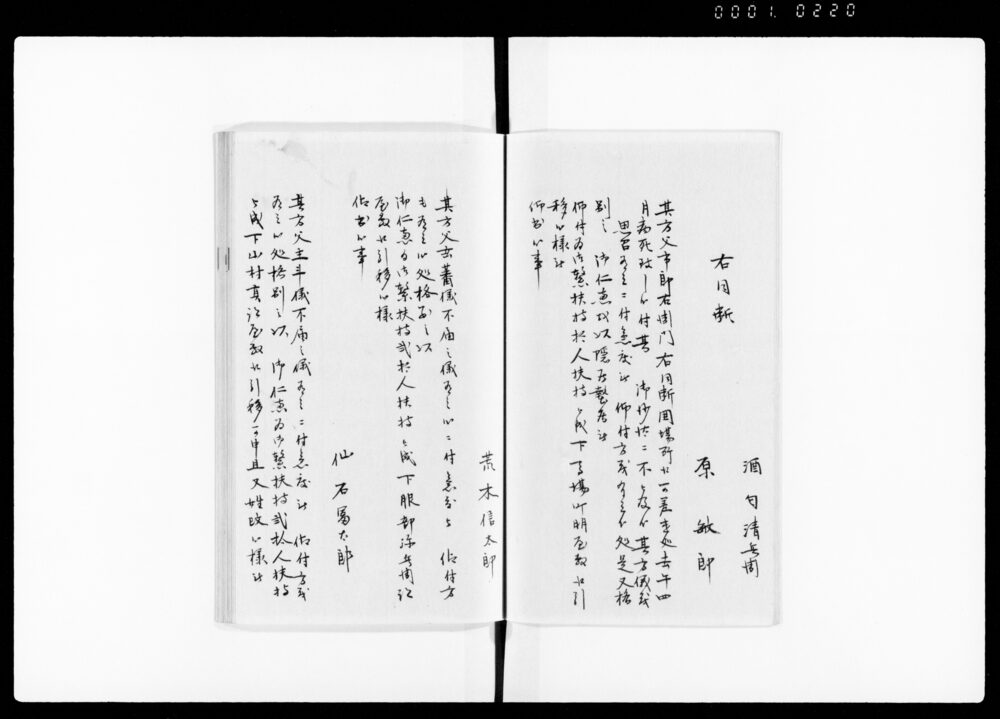 0001. 0220
酒匂清兵衛
右同断
原敏郎
其方父市郎右衛門右同断囲場所江可差遣処去午四
月病死致し候付其 御沙汰ニ不被及候其方儀茂
思召有之ニ付急度も 仰付方茂有之候処是又格
別之 御仁恵を以隠居蟄居
仰付為御繋扶持拾人扶持被成下馬場町明屋敷江引
移候様
仰出候事
荒木信太郎
其方父 儀不届之儀有之候ニ付急度も 仰付方
も有之候処格別之以
御仁恵為御繋扶持弐拾人扶持被成下服部 兵衛
屋敷江引移候様
仰出候事
仙石富太郎
其方父主斗儀不届之儀有之ニ付急度も 仰付方茂
有之候処格別之以 御仁恵為御繋扶持弐拾人扶持
被成下山村 屋敷江引移可申且又姓改候様